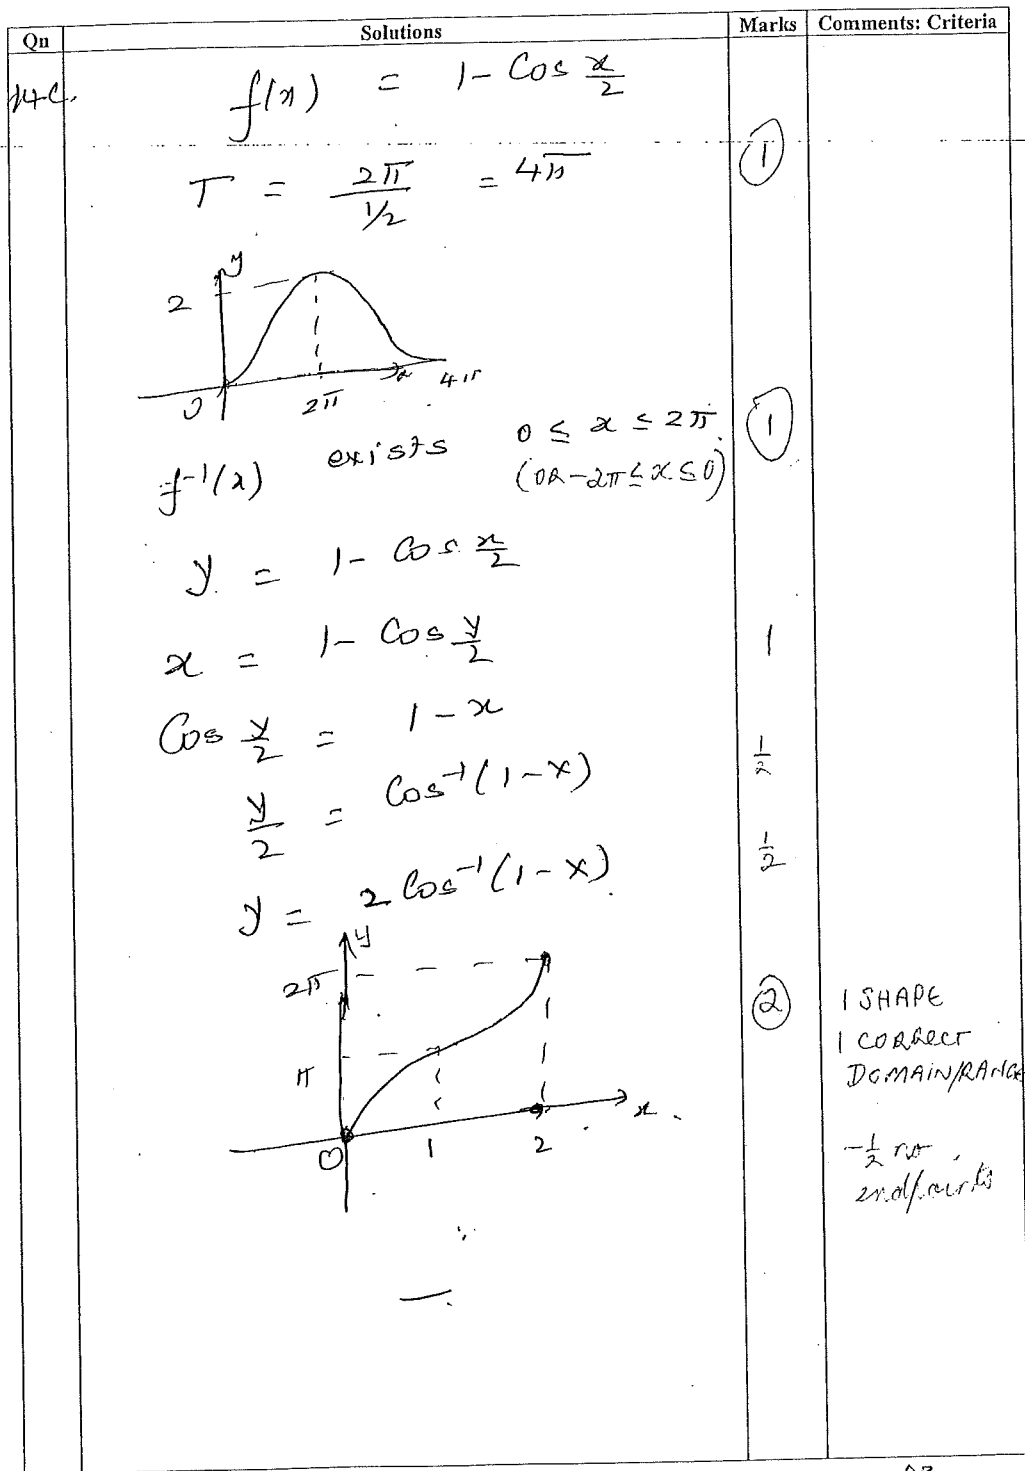 Qn Solutions Marks Comments: Criteria
14c. f(x) = 1 - Cos x/2
T = 2π / 1/2 = 4π 1
y
2
0 2π x 4π
f⁻¹(x) exists 0 ≤ x ≤ 2π. 1
(OR -2π ≤ x ≤ 0)
y = 1 - Cos x/2
x = 1 - Cos y/2 1
Cos y/2 = 1 - x 1/2
y/2 = Cos⁻¹(1-x) 1/2
y = 2 Cos⁻¹(1-x)
y
2π 2 1 SHAPE
π 1 CORRECT
DOMAIN/RANGE
x
0 1 2
-1/2 no
endpoints